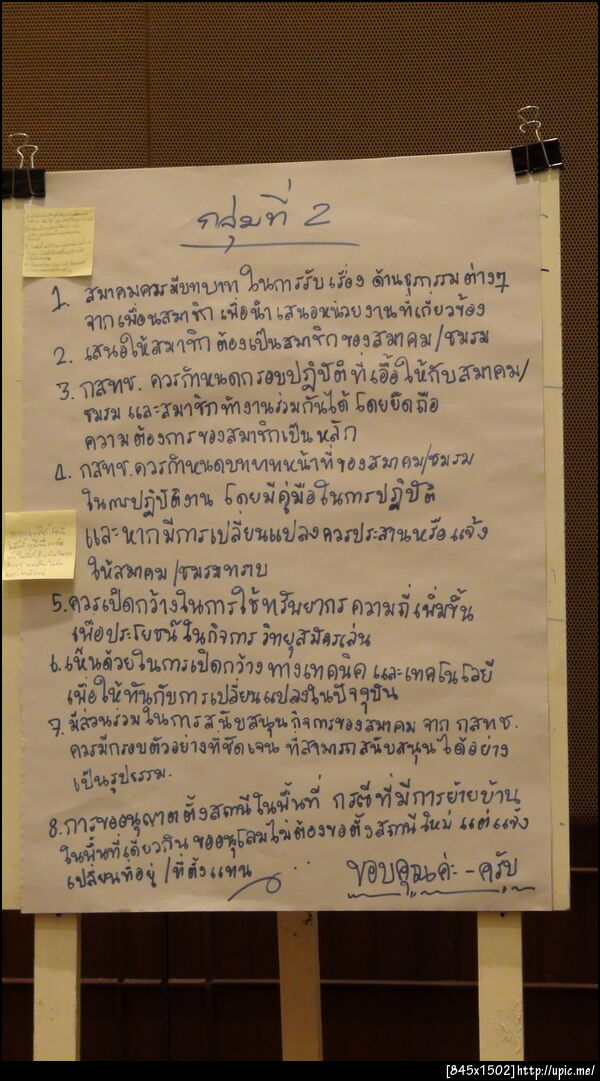 กลุ่มที่ 2
1. สมาคมควรมีบทบาท ในการรับเรื่อง ด้านธุรกรรมต่างๆ
จากเพื่อนสมาชิก เพื่อนำเสนอหน่วยงานที่เกี่ยวข้อง
2. เสนอให้สมาชิก ต้องเป็นสมาชิกของสมาคม/ชมรม
3. กสทช. ควรกำหนดกรอบปฏิบัติ ที่เอื้อให้กับสมาคม/
ชมรม และสมาชิกทำงานร่วมกันได้ โดยยึดถือ
ความต้องการของสมาชิกเป็นหลัก
4. กสทช.ควรกำหนดบทบาทหน้าที่ของสมาคม/ชมรม
ในการปฏิบัติงาน โดยมีคู่มือในการปฏิบัติ
และหากมีการเปลี่ยนแปลงควรประสานหรือแจ้ง
ให้สมาคม/ชมรมทราบ
5. ควรเปิดกว้างในการใช้ทรัพยากร ความถี่เพิ่มขึ้น
เพื่อประโยชน์ในกิจการ วิทยุสมัครเล่น
6. เห็นด้วยในการเปิดกว้าง ทางเทคนิค และเทคโนโลยี
เพื่อให้ทันกับการเปลี่ยนแปลงในปัจจุบัน
7. มีส่วนร่วมในการสนับสนุน กิจการของสมาคม จาก กสทช.
ควรมีกรอบตัวอย่างที่ชัดเจน ที่สามารถสนับสนุนได้อย่าง
เป็นรูปธรรม.
8. การขออนุญาตตั้งสถานีในพื้นที่ กรณีที่มีการย้ายบ้าน
ในพื้นที่เดียวกัน ขออนุโลมไม่ต้องขอตั้งสถานีใหม่ แต่แจ้ง
เปลี่ยนที่อยู่/ที่ตั้งแทน
ขอบคุณค่ะ-ครับ
[845x1502]http://upic.me/